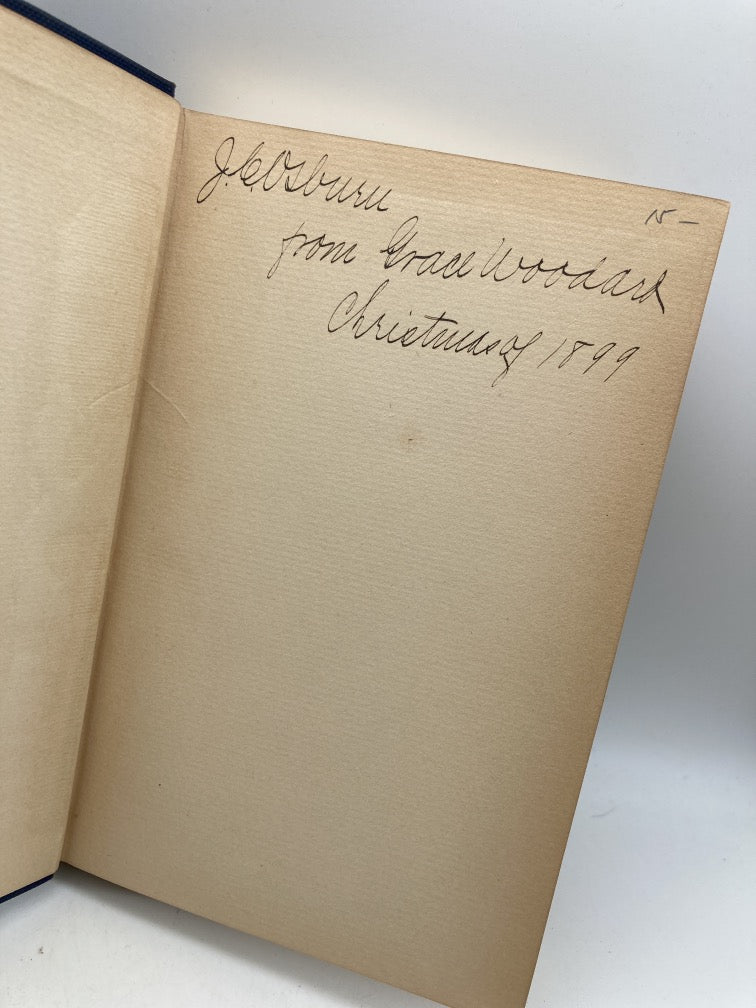 J. C. Osburn
15 —
from Grace Woodard
Christmas of 1899